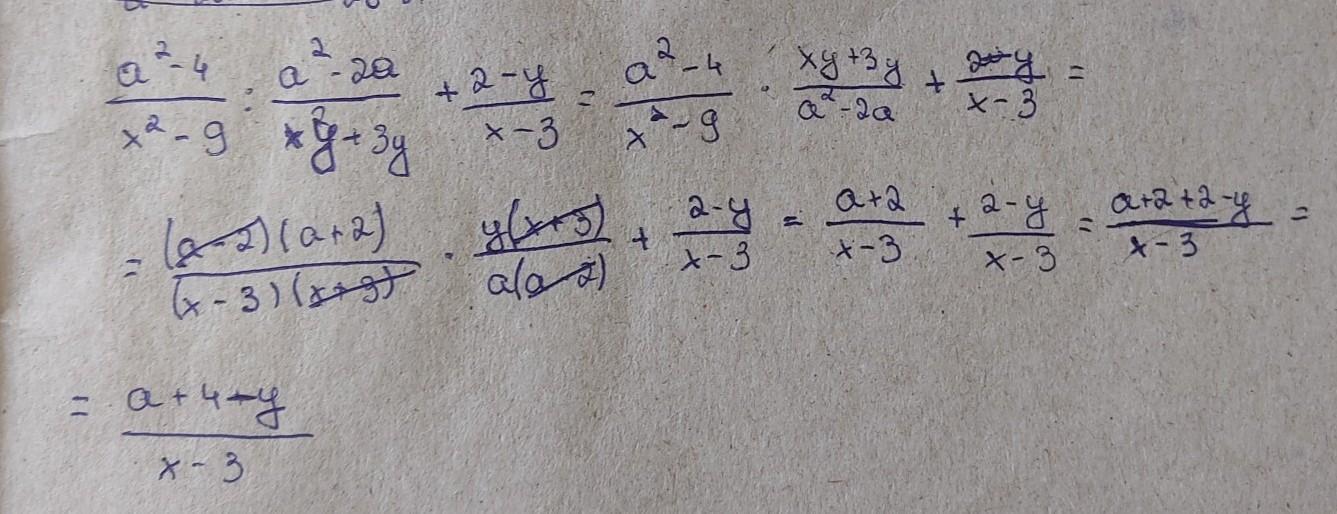 (a²-4)/(x²-9) : (a²-2a)/(xy+3y) + (2-y)/(x-3) = (a²-4)/(x²-9) · (xy+3y)/(a²-2a) + (2-y)/(x-3) =
= ((a-2)(a+2))/((x-3)(x+3)) · (y(x+3))/(a(a-2)) + (2-y)/(x-3) = (a+2)/(x-3) + (2-y)/(x-3) = (a+2+2-y)/(x-3) =
= (a+4-y)/(x-3)